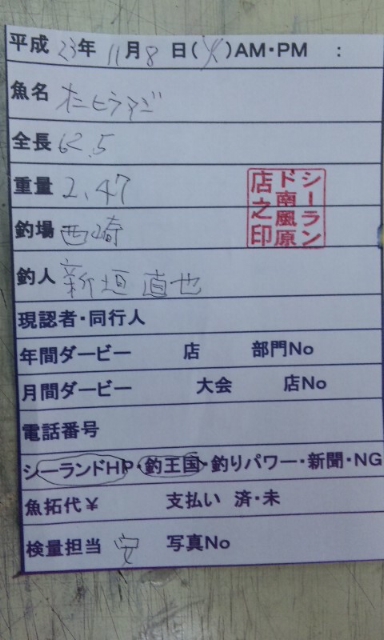 平成 23年 11月 8 日(火)AM・PM :
魚名 オニヒラアジ
全長 62.5
重量 2.47
シーランド南風原店之印
釣場 西崎
釣人 新垣 直也
現認者・同行人
年間ダービー 店 部門No
月間ダービー 大会 店No
電話番号
シーランドHP・釣王国・釣りパワー・新聞・NG
魚拓代¥ 支払い 済・未
検量担当 安 写真No